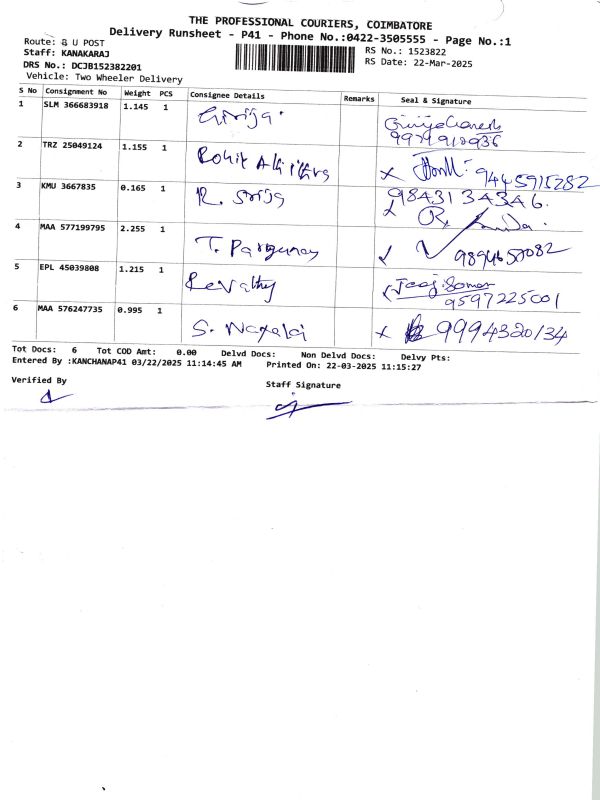 THE PROFESSIONAL COURIERS, COIMBATORE
Delivery Runsheet - P41 - Phone No.:0422-3505555 - Page No.:1
Route: B U POST
RS No.: 1523822
Staff: KANAKARAJ
RS Date: 22-Mar-2025
DRS No.: DCJB152382201
Vehicle: Two Wheeler Delivery
S No Consignment No Weight PCS Consignee Details Remarks Seal & Signature
1 SLM 366683918 1.145 1 Girija
2 TRZ 25049124 1.155 1 Rohit 9445915282
3 KMU 3667835 0.165 1 R. Srija 9843134346
4 MAA 577199795 2.255 1 T. 
5 EPL 45039808 1.215 1 Revathy 9597225001
6 MAA 576247735 0.995 1 S. 9994320134
Tot Docs: 6 Tot COD Amt: 0.00 Delvd Docs: Non Delvd Docs: Delvy Pts:
Entered By :KANCHANAP41 03/22/2025 11:14:45 AM Printed On: 22-03-2025 11:15:27
Verified By
Staff Signature